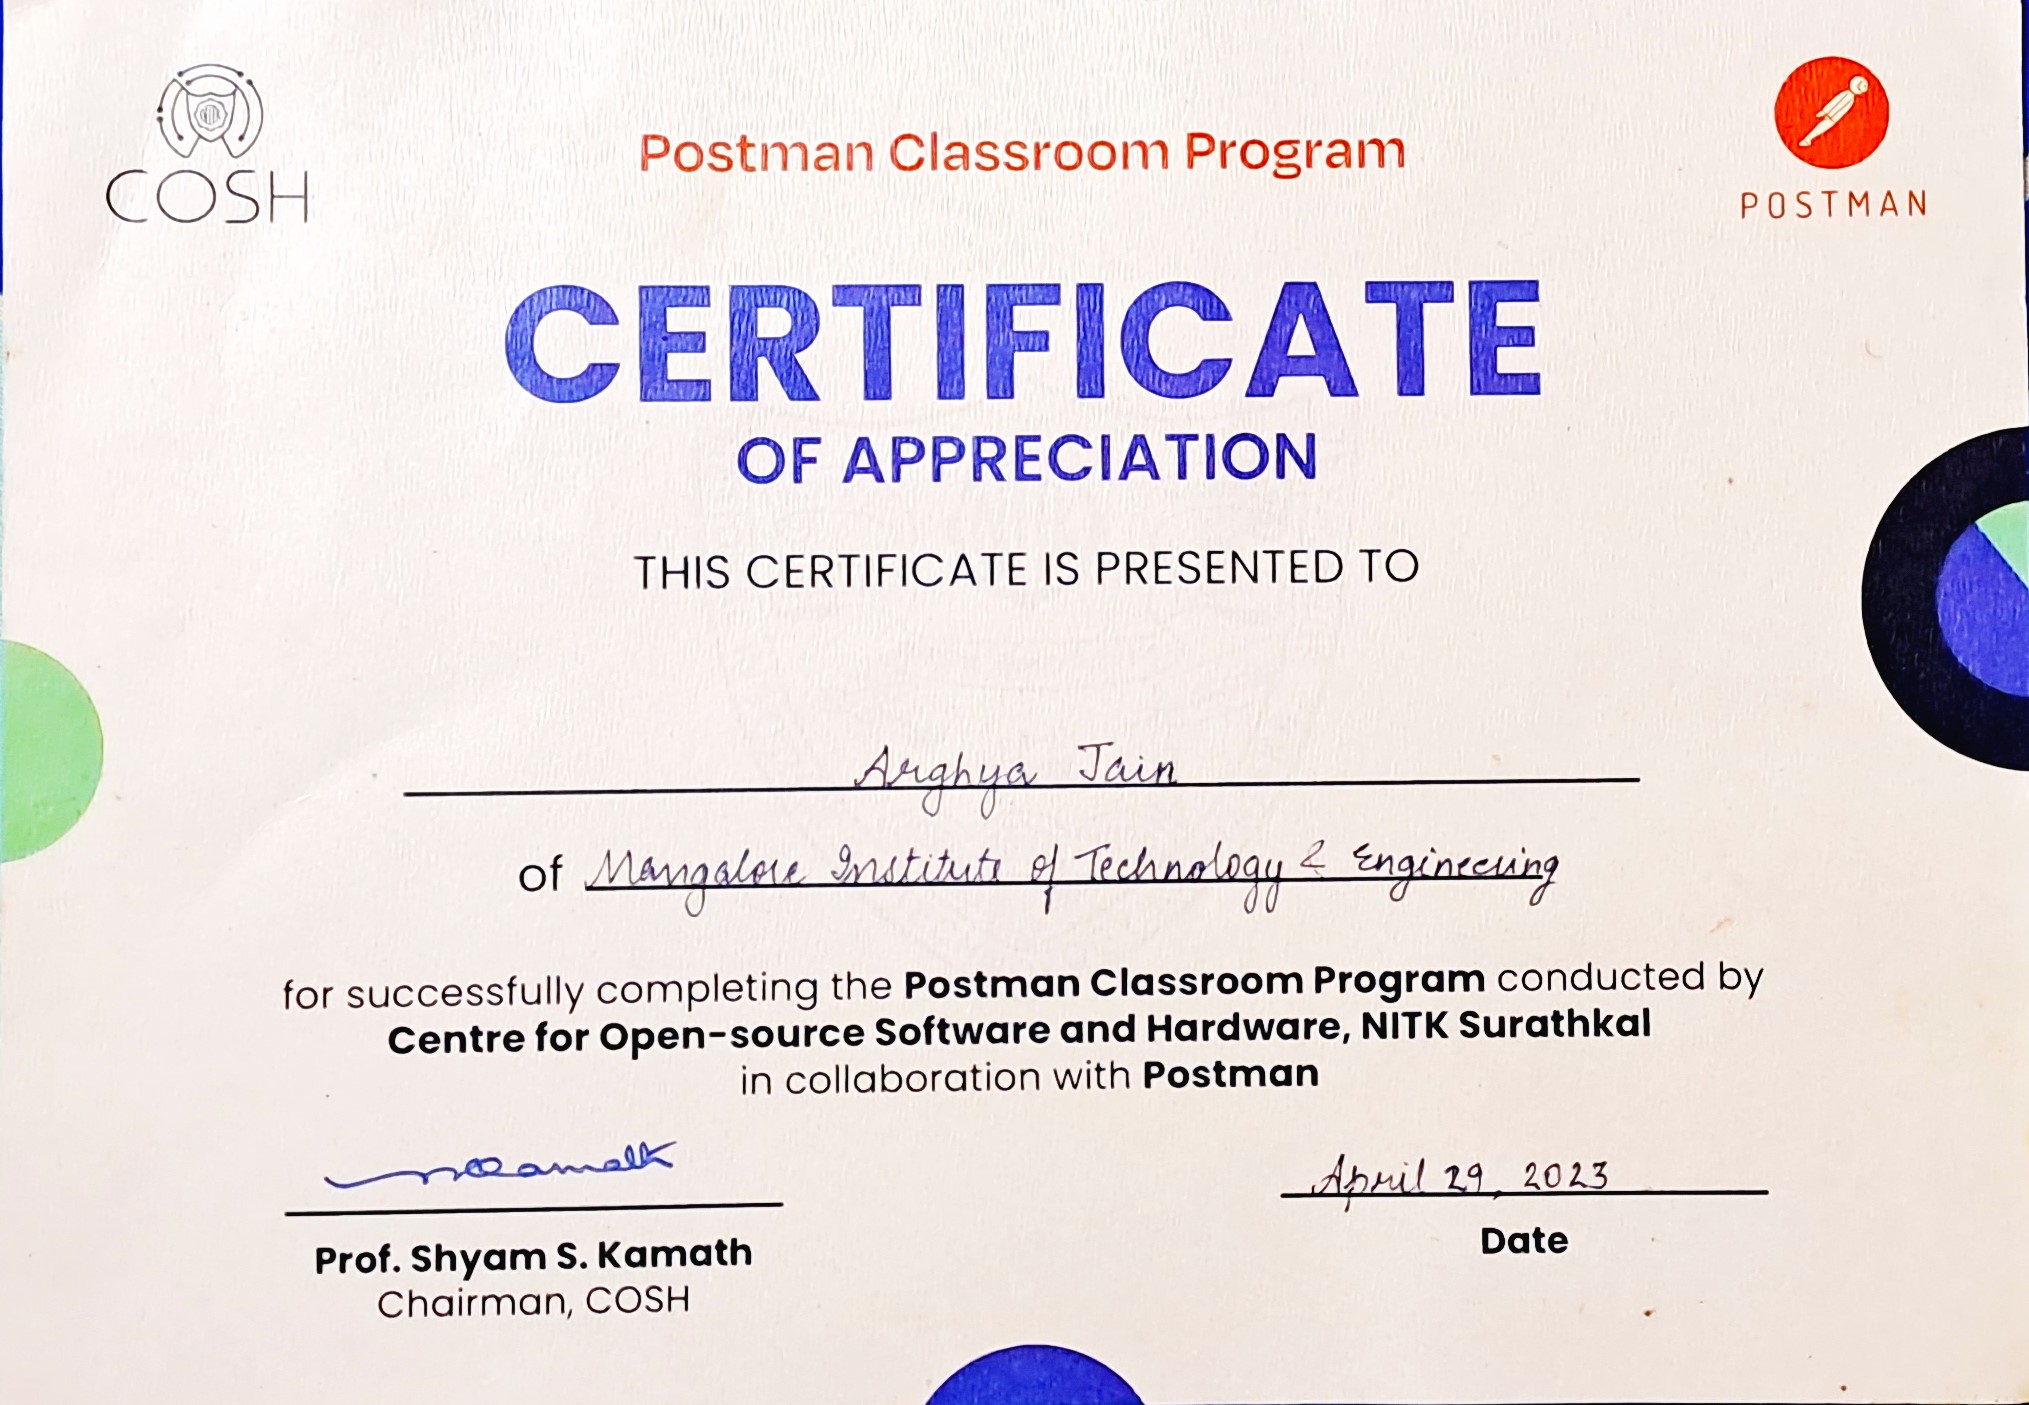 COSH
Postman Classroom Program
POSTMAN
CERTIFICATE
OF APPRECIATION
THIS CERTIFICATE IS PRESENTED TO
Arghya Jain
of Mangalore Institute of Technology & Engineering
for successfully completing the Postman Classroom Program conducted by
Centre for Open-source Software and Hardware, NITK Surathkal
in collaboration with Postman
April 29, 2023
Prof. Shyam S. Kamath
Date
Chairman, COSH